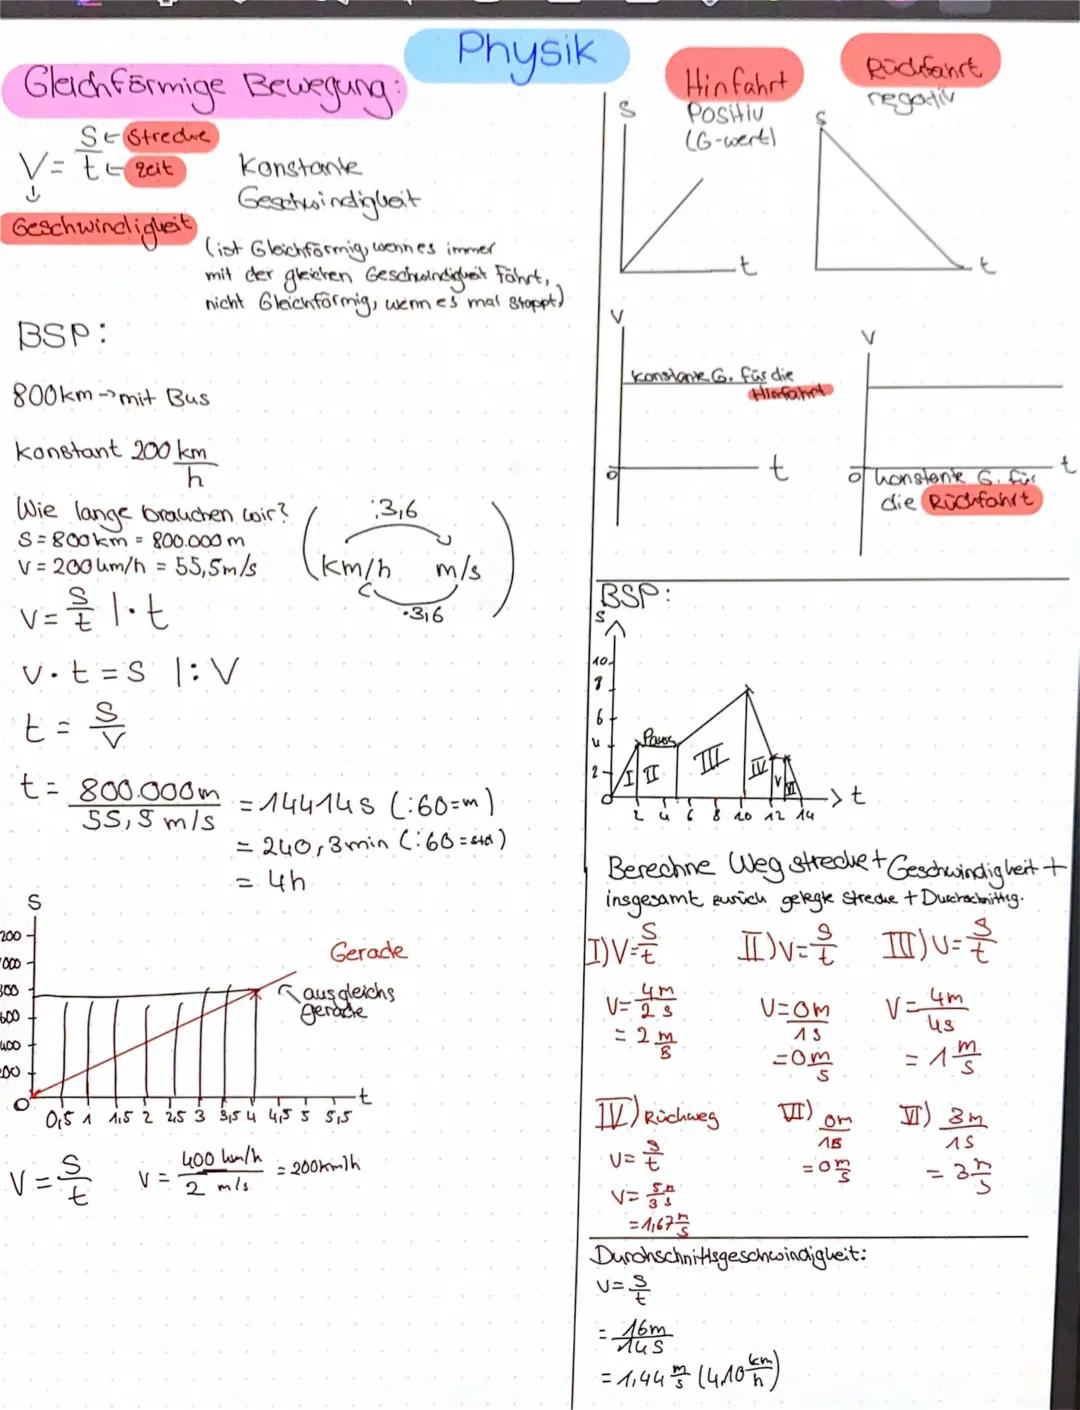 Physik
Gleichförmige Bewegung:
V = s/t
s ← Strecke
t ← Zeit
↓
Geschwindigkeit
Konstante
Geschwindigkeit
(ist Gleichförmig, wenn es immer
mit der gleichen Geschwindigkeit Fährt,
nicht Gleichförmig, wenn es mal stoppt)
BSP:
800km → mit Bus
konstant 200 km/h
Wie lange brauchen wir?
S = 800km = 800.000m
V = 200km/h = 55,5m/s
:3,6
(km/h m/s)
·3,6
V = s/t |·t
V·t = S |:V
t = S/V
t = 800.000m / 55,5 m/s = 14414s (:60=m)
= 240,3min (:60=std)
= 4h
S
200
000
800
600
400
200
0
Gerade
ausgleichs
gerade
0,5 1 1,5 2 2,5 3 3,5 4 4,5 5 5,5 t
V = S/t V = 400 km/h / 2 m/s = 200km/h
Hinfahrt
Positiv
(G-wert)
S
t
Rückfahrt
negativ
S
t
V
konstante G. für die
Hinfahrt
0
t
V
0
t
konstante G. für
die Rückfahrt
BSP:
S
10
8
6
4
2
0
Pause
I II III IV V VI
2 4 6 8 10 12 14
t
Berechne Wegstrecke + Geschwindigkeit +
insgesamt zurück gelegte Strecke + Durchschnittsg.
I) V = S/t
V = 4m/2s
= 2 m/s
II) V = S/t
V = 0m/1s
= 0 m/s
III) V = S/t
V = 4m/4s
= 1 m/s
IV) Rückweg
V = S/t
V = 5m/3s
= 1,67 m/s
VI) 0m/1s
= 0 m/s
VI) 3m/1s
= 3 m/s
Durchschnittsgeschwindigkeit:
V = S/t
= 16m/14s
= 1,44 m/s (4,10 km/h)